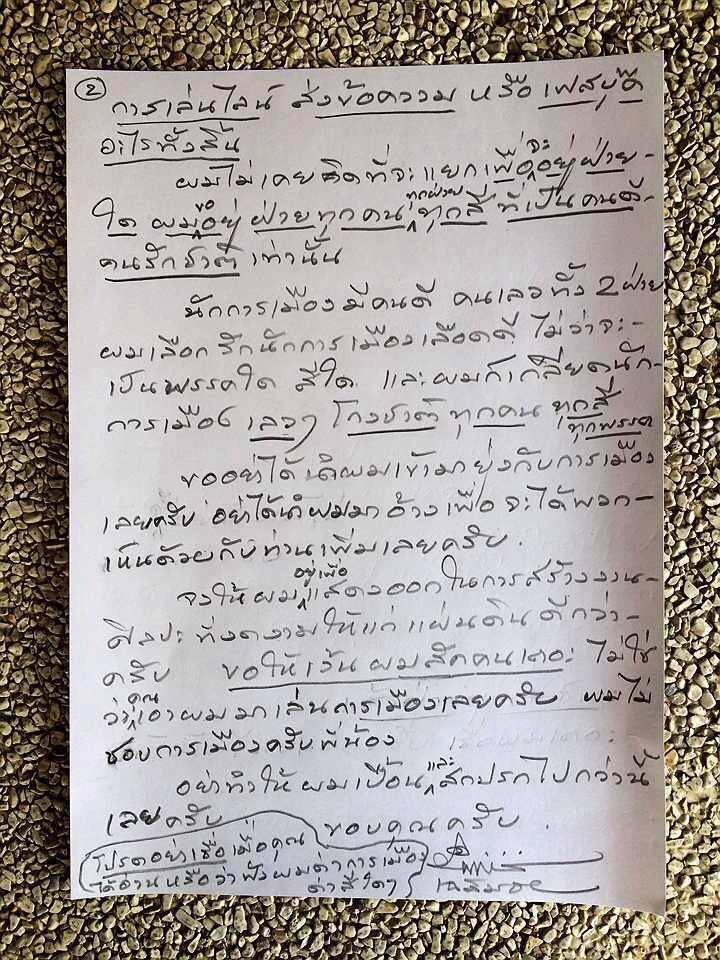 ②
การเล่นไลน์ ส่งข้อความ หรือ เฟสบุ๊ค
อะไรทั้งสิ้น
ผมไม่เคยคิดที่จะแยกเพื่อจะอยู่ฝ่าย-
ใด ผมขออยู่ ฝ่ายทุกคน ทุกฝ่าย ทุกสี ที่เป็นคนดี-
คนรักชาติ เท่านั้น
นักการเมืองมีคนดี คนเลวทั้ง 2 ฝ่าย
ผมเลือกรักนักการเมืองเลือดดี ไม่ว่าจะ-
เป็นพรรคใด สีใด และผมก็เกลียดนัก-
การเมือง เลวๆ โกงชาติ ทุกคน ทุกสี
ทุกพรรค
ขออย่าได้นำผมเข้ามายุ่งกับการเมือง
เลยครับ อย่าได้นำผมมาอ้างเพื่อจะได้พวก-
เห็นด้วยกับท่านเพิ่มเลยครับ.
จงให้ผมอยู่เพื่อแสดงออกในการสร้างงาน-
ศิลปะที่งดงามให้แก่แผ่นดินดีกว่า-
ครับ ขอให้เว้นผมสักคนเถอะ ไม่ใช่
ว่าคุณเอาผมมาเล่นการเมืองเลยครับ ผมไม่
ชอบการเมืองครับพี่น้อง
อย่าทำให้ผมเปื้อนและสกปรกไปกว่านี้
เลยครับ ขอบคุณครับ.
โปรดอย่าเชื่อเมื่อคุณ
ได้อ่านหรือว่าฟังผมด่าการเมือง
ด่าสีใดๆ
เฉลิมชัย